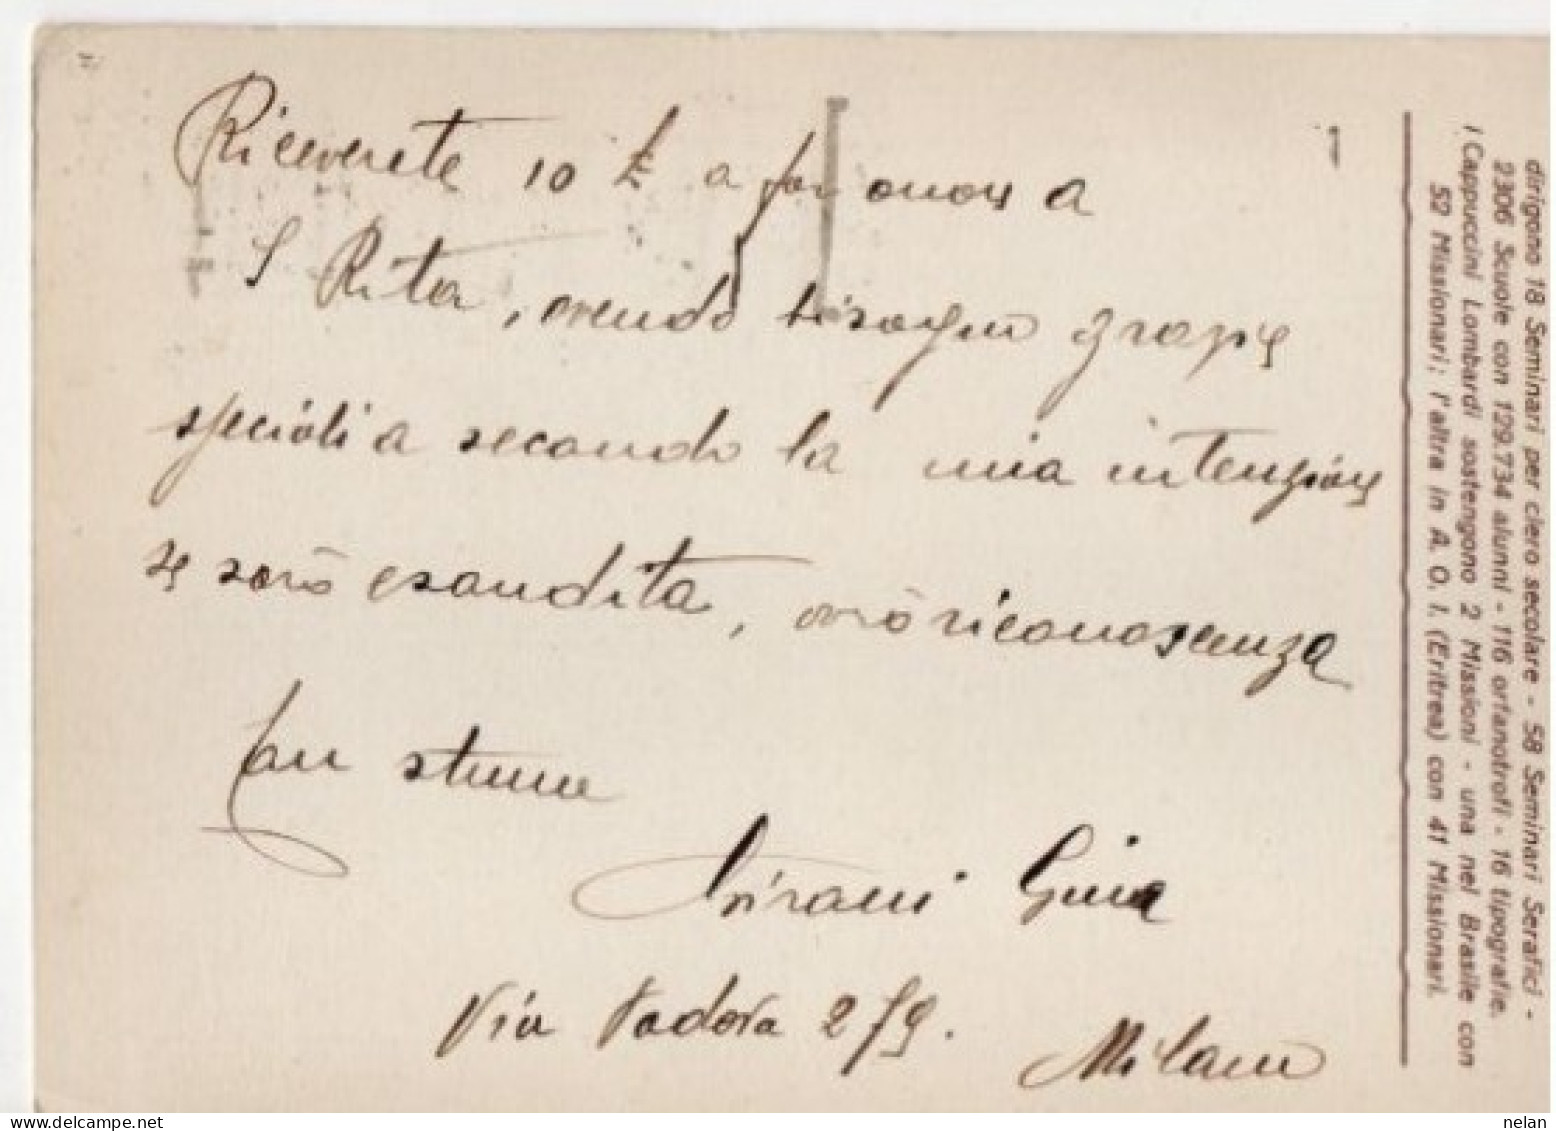 Riceverete 10 £ a far onore a
S Rita, avendo bisogno grazie
speciali a secondo la mia intenzione
se sarò esaudita, avrò riconoscenza
con stima
Gina
Via Padova 279.
Milano
dirigono 18 Seminari per clero secolare - 58 Seminari Serafici -
2306 Scuole con 129.734 alunni - 116 orfanotrofi - 16 tipografie.
i Cappuccini Lombardi sostengono 2 Missioni - una nel Brasile con
52 Missionari; l'altra in A. O. I. (Eritrea) con 41 Missionari.
delcampe.net
nelan